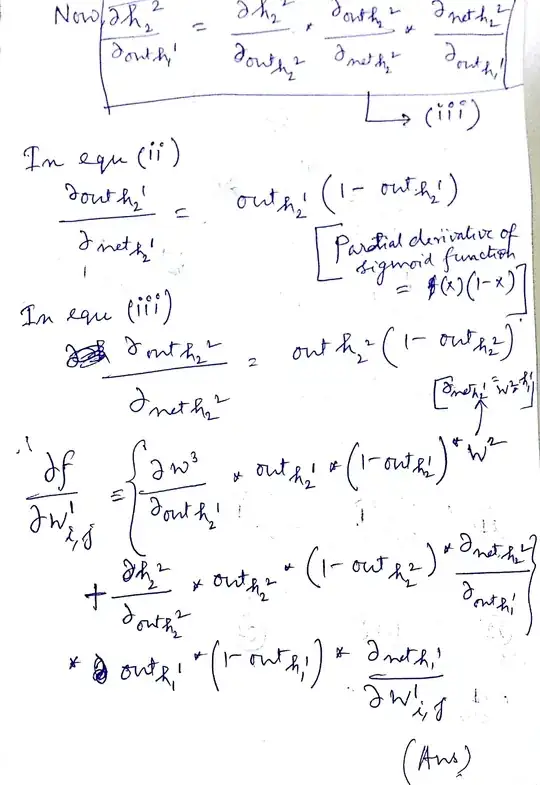 Now, ∂h₂²/∂out h₁¹ = ∂h₂²/∂out h₂² * ∂out h₂²/∂net h₂² * ∂net h₂²/∂out h₁¹
→ (iii)
In equ (ii)
∂out h₂¹/∂net h₂¹ = out h₂¹ (1 - out h₂¹)
[Partial derivative of
sigmoid function
= f(x)(1-x)]
In equ (iii)
∂out h₂²/∂net h₂² = out h₂² (1 - out h₂²)
∂f/∂W¹i,j = {∂w³/∂out h₂¹ * out h₂¹ * (1 - out h₂¹) * W²
+ ∂h₂²/∂out h₂² * out h₂² * (1 - out h₂²) * ∂net h₂²/∂out h₁¹}
* out h₁¹ * (1 - out h₁¹) * ∂net h₁¹/∂W¹i,j
(Ans)